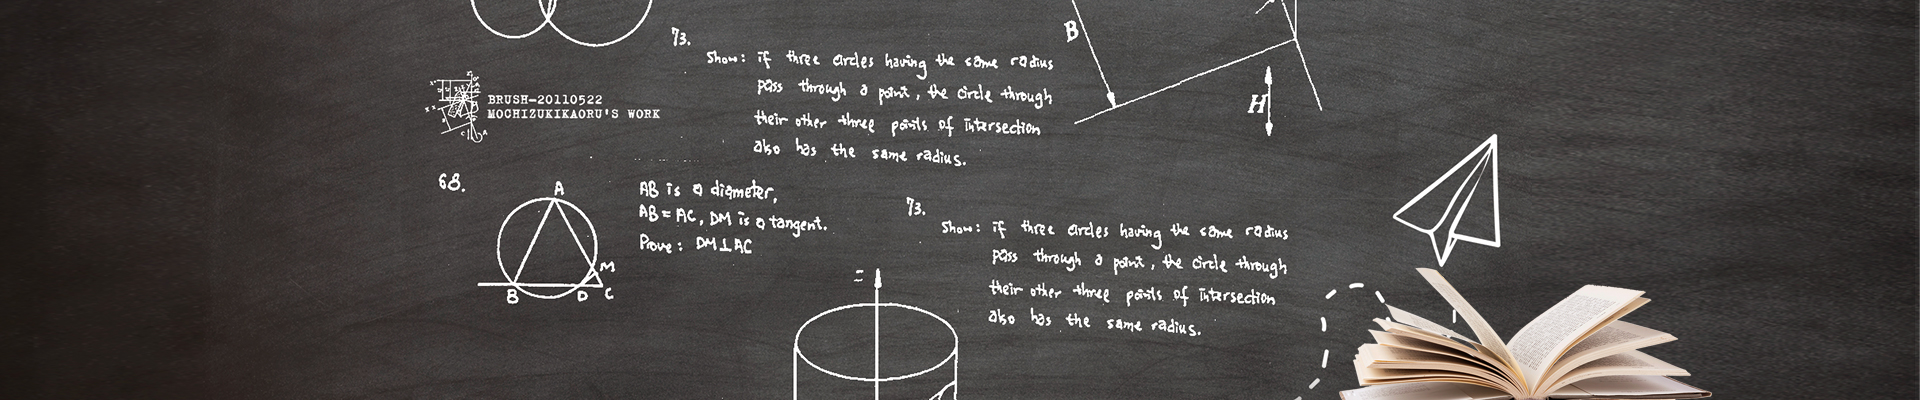 73.
Show: if three circles having the same radius
pass through a point, the circle through
their other three points of intersection
also has the same radius.
B
H
BRUSH-20110522
MOCHIZUKIKAORU'S WORK
68.
A
M
B
D
C
AB is a diameter,
AB = AC, DM is a tangent.
Prove: DM⊥AC
73.
Show: if three circles having the same radius
pass through a point, the circle through
their other three points of intersection
also has the same radius.